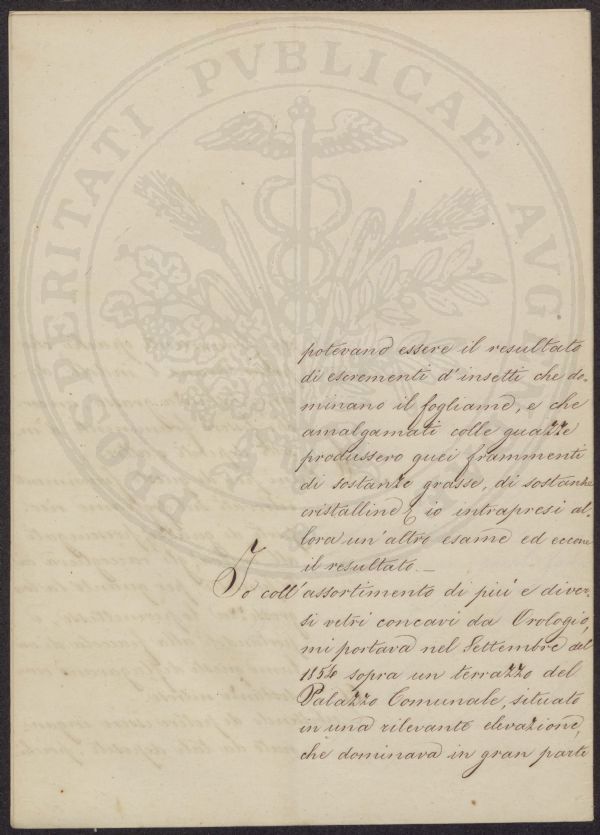 PROSPERITATI PVBLICAE AVGE
potevano essere il resultato
di escrementi d'insetti che do-
minano il fogliame, e che
amalgamati colle guazze
produssero quei frammenti
di sostanze grasse, di sostanze
cristalline, io intrapresi al-
lora un'altro esame ed eccone
il resultato.—
Io coll'assortimento di più e diver-
si vetri concavi da Orologio,
mi portava nel Settembre del
1854 sopra un terrazzo del
Palazzo Comunale, situato
in una rilevante elevazione,
che dominava in gran parte